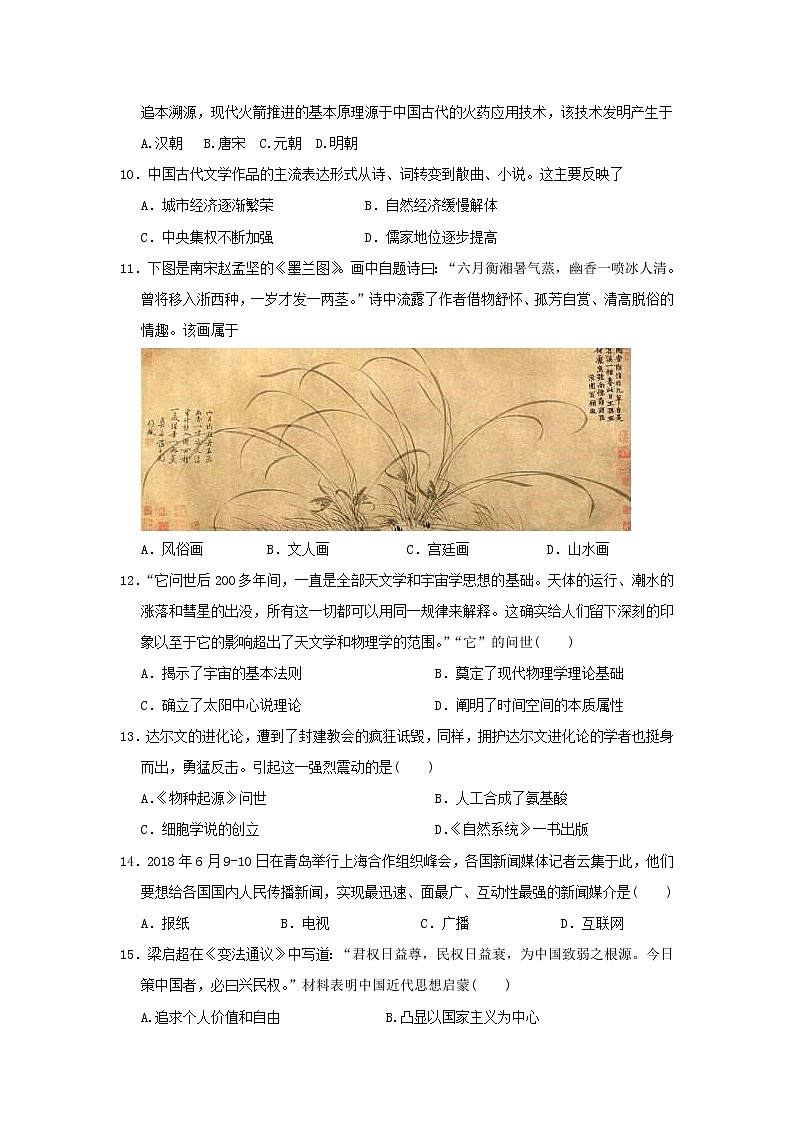 追本溯源，现代火箭推进的基本原理源于中国古代的火药应用技术，该技术发明产生于
A.汉朝 B.唐宋 C.元朝 D.明朝
10．中国古代文学作品的主流表达形式从诗、词转变到散曲、小说。这主要反映了
A．城市经济逐渐繁荣 B．自然经济缓慢解体
C．中央集权不断加强 D．儒家地位逐步提高
11．下图是南宋赵孟坚的《墨兰图》。画中自题诗曰：“六月衡湘暑气蒸，幽香一喷冰人清。
曾将移入浙西种，一岁才发一两茎。”诗中流露了作者借物舒怀、孤芳自赏、清高脱俗的
情趣。该画属于
A．风俗画 B．文人画 C．宫廷画 D．山水画
12．“它问世后 200 多年间，一直是全部天文学和宇宙学思想的基础。天体的运行、潮水的
涨落和彗星的出没，所有这一切都可以用同一规律来解释。这确实给人们留下深刻的印
象以至于它的影响超出了天文学和物理学的范围。”“它”的问世( )
A．揭示了宇宙的基本法则 B．奠定了现代物理学理论基础
C．确立了太阳中心说理论 D．阐明了时间空间的本质属性
13．达尔文的进化论，遭到了封建教会的疯狂诋毁，同样，拥护达尔文进化论的学者也挺身
而出，勇猛反击。引起这一强烈震动的是( )
A.《物种起源》问世 B．人工合成了氨基酸
C．细胞学说的创立 D.《自然系统》一书出版
14．2018 年 6 月 9-10 日在青岛举行上海合作组织峰会，各国新闻媒体记者云集于此，他们
要想给各国国内人民传播新闻，实现最迅速、面最广、互动性最强的新闻媒介是( )
A．报纸 B．电视 C．广播 D．互联网
15．梁启超在《变法通议》中写道：“君权日益尊，民权日益衰，为中国致弱之根源。今日
策中国者，必曰兴民权。”材料表明中国近代思想启蒙( )
A.追求个人价值和自由 B.凸显以国家主义为中心